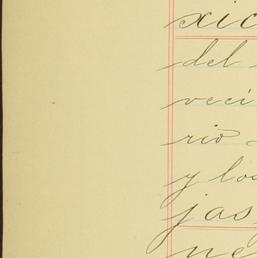 xic
del
veci
rio
y los
jas
ne